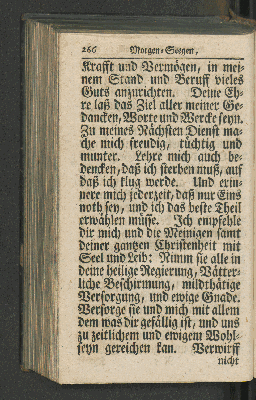 266 Morgen-Seegen,
Krafft und Vermögen, in mei-
nem Stand und Beruff vieles
Guts anzurichten. Deine Eh-
re laß das Ziel aller meiner Ge-
dancken, Worte und Wercke seyn.
Zu meines Nächsten Dienst ma-
che mich freudig, tüchtig und
munter. Lehre mich auch be-
dencken, daß ich sterben muß, auf
daß ich klug werde. Und erin-
nere mich jederzeit, daß nur Eins
noth sey, und ich das beste Theil
erwählen müse. Ich empfehle
dir mich und die Meinigen samt
deiner gantzen Christenheit mit
Seel und Leib: Nimm sie alle in
deine heilige Regierung, Vätter-
liche Beschirmung, mildthätige
Versorgung, und ewige Gnade.
Versorge sie und mich mit allem
dem was dir gefällig ist, und uns
zu zeitlichem und ewigem Wohl-
seyn gereichen kan. Verwirff
nicht